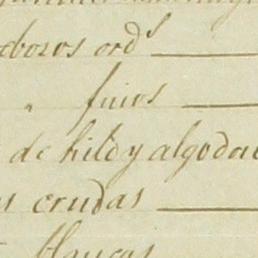 ebozos ord^s
" finos
de hilo y algodon
crudas
blancas